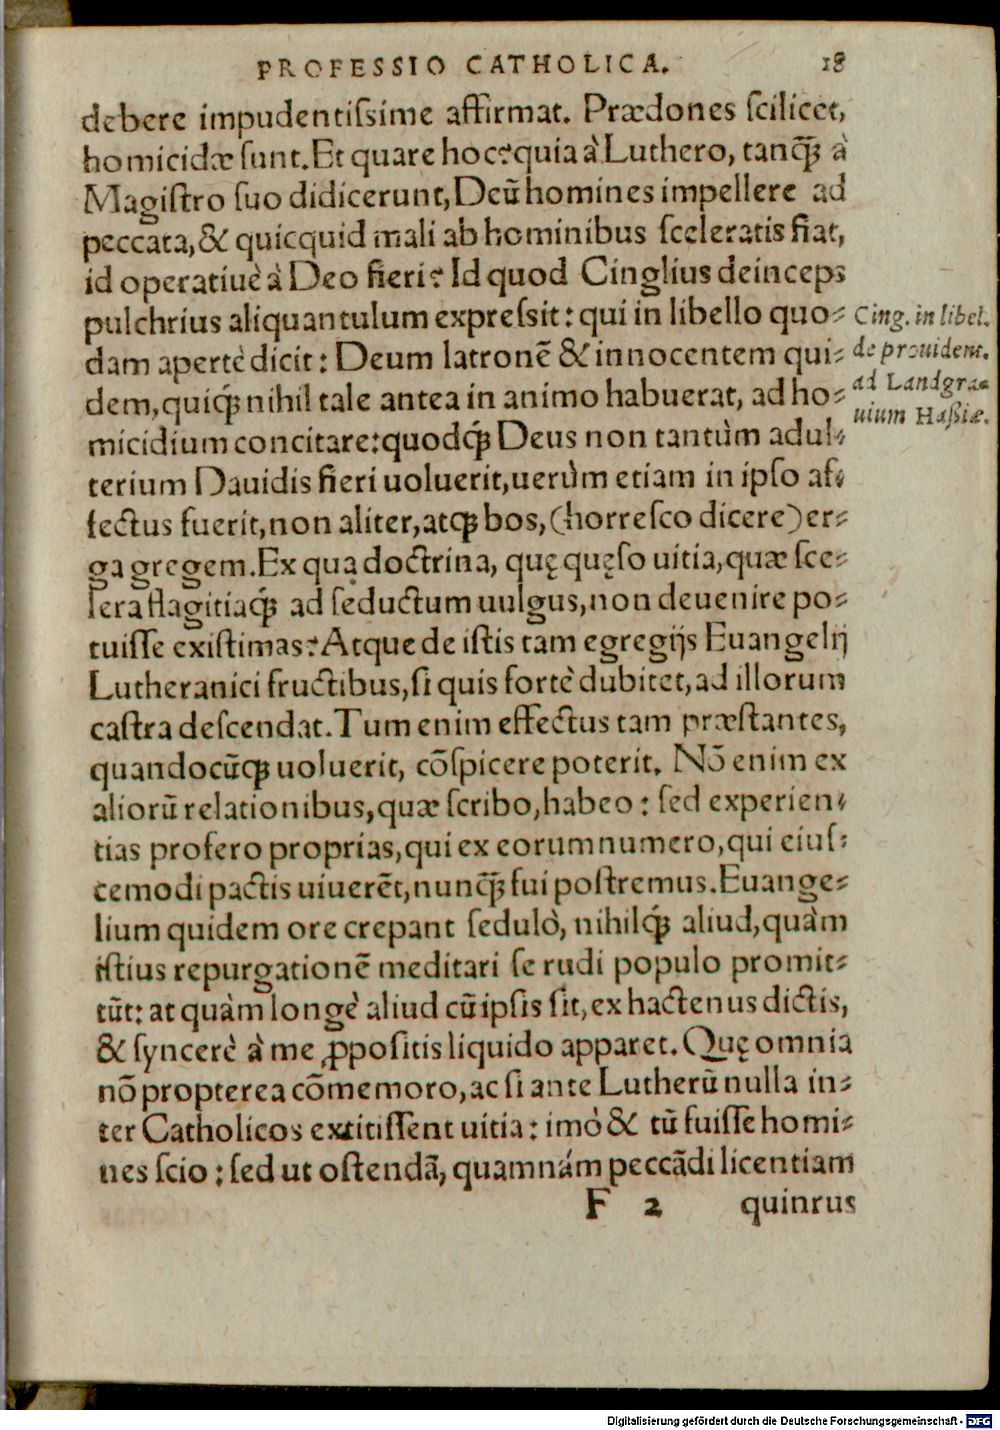 PROFESSIO CATHOLICA. 18
debere impudentiſsime affirmat. Prædones ſcilicet,
homicidæ ſunt. Et quare hoc? quia à Luthero, tanꝗ̃ à
Magiſtro ſuo didicerunt, Deũ homines impellere ad
peccata, & quicquid mali ab hominibus ſceleratis fiat,
id operatiuè à Deo fieri? Id quod Cinglius deinceps
pulchrius aliquantulum expreſsit: qui in libello quo-
dam apertè dicit: Deum latronẽ & innocentem qui-
dem, quiq́; nihil tale antea in animo habuerat, ad ho-
micidium concitare: quodq́; Deus non tantùm adul-
terium Dauidis fieri uoluerit, uerùm etiam in ipſo af-
fectus fuerit, non aliter, atq; bos, (horreſco dicere) er-
ga gregem. Ex qua doctrina, quę quęſo uitia, quæ ſce-
lera flagitiaq́; ad ſeductum uulgus, non deuenire po-
tuiſſe exiſtimas? Atque de iſtis tam egregijs Euangelij
Lutheranici fructibus, ſi quis fortè dubitet, ad illorum
caſtra deſcendat. Tum enim effectus tam præſtantes,
quandocũq; uoluerit, cõſpicere poterit. Nõ enim ex
aliorũ relationibus, quæ ſcribo, habeo: ſed experien-
tias profero proprias, qui ex eorum numero, qui eiuſ-
cemodi pactis uiuerẽt, nunꝗ̃ fui poſtremus. Euange-
lium quidem ore crepant ſedulò, nihilq́; aliud, quàm
iſtius repurgationẽ meditari ſe rudi populo promit-
tũt: at quàm longè aliud cũ ipſis ſit, ex hactenus dictis,
& ſyncerè à me ꝓpoſitis liquido apparet. Quę omnia
nõ propterea cõmemoro, ac ſi ante Lutherũ nulla in-
ter Catholicos extitiſſent uitia: imò & tũ fuiſſe homi-
nes ſcio: ſed ut oſtendã, quamnám peccãdi licentiam
F 2 quintus
Cing. in libel.
de prouident.
ad Landgra-
uium Haſsiæ.
Digitalisierung gefördert durch die Deutsche Forschungsgemeinschaft - DFG